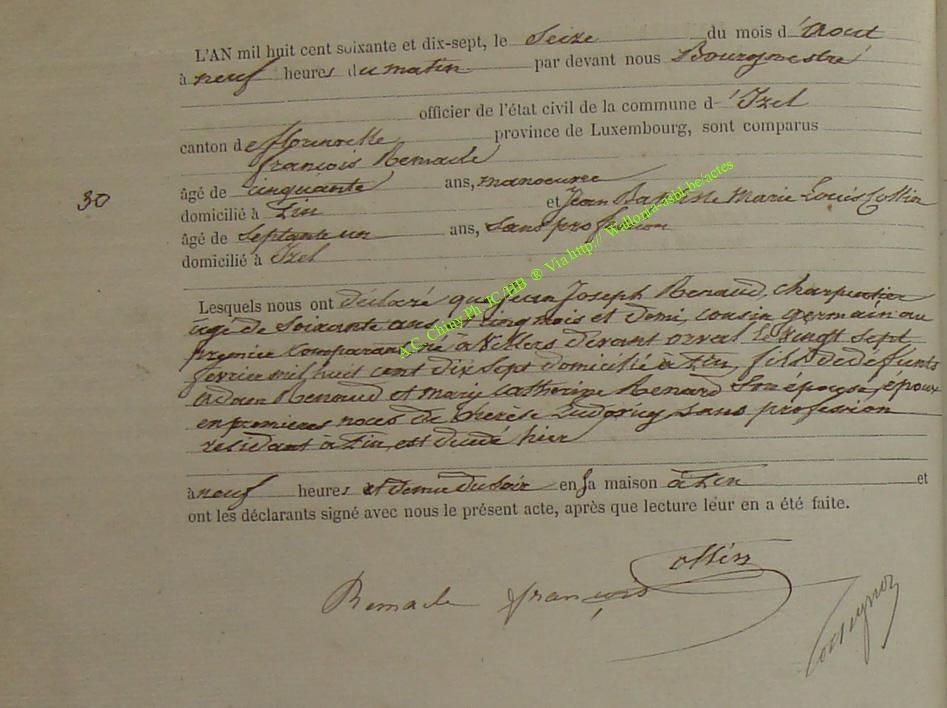 L'AN mil huit cent soixante et dix-sept, le Seize du mois d'Aout
à neuf heures du matin par devant nous Bourgmestre
officier de l'état civil de la commune d'Izel
canton de florenville province de Luxembourg, sont comparus
françois Remacle
30
âgé de cinquante ans, manoeuvre
domicilié à Pin et Jean Baptiste Marie Louis Collin
âgé de Septante un ans, Sans profession
domicilié à Izel
Lesquels nous ont déclaré que Jean Joseph Renaud, charpentier
agé de Soixante ans et cinq mois et demi, cousin germain au
premier comparant né à Villers devant orval le vingt sept
fevrier mil huit cent dix sept domicilié à Pin, fils de défunts
Adam Renaud et marie catherine Renard Son épouse, époux
en premieres noces de Thérèse Sans profession
résidant à Pin, est décédé hier
à neuf heures et demie du Soir en Sa maison à Pin et
ont les déclarants signé avec nous le présent acte, après que lecture leur en a été faite.
Collin
Remacle françois
A.C. Chiny Ph. JC/HB ® Via http://Wallonia-asbl-be/actes